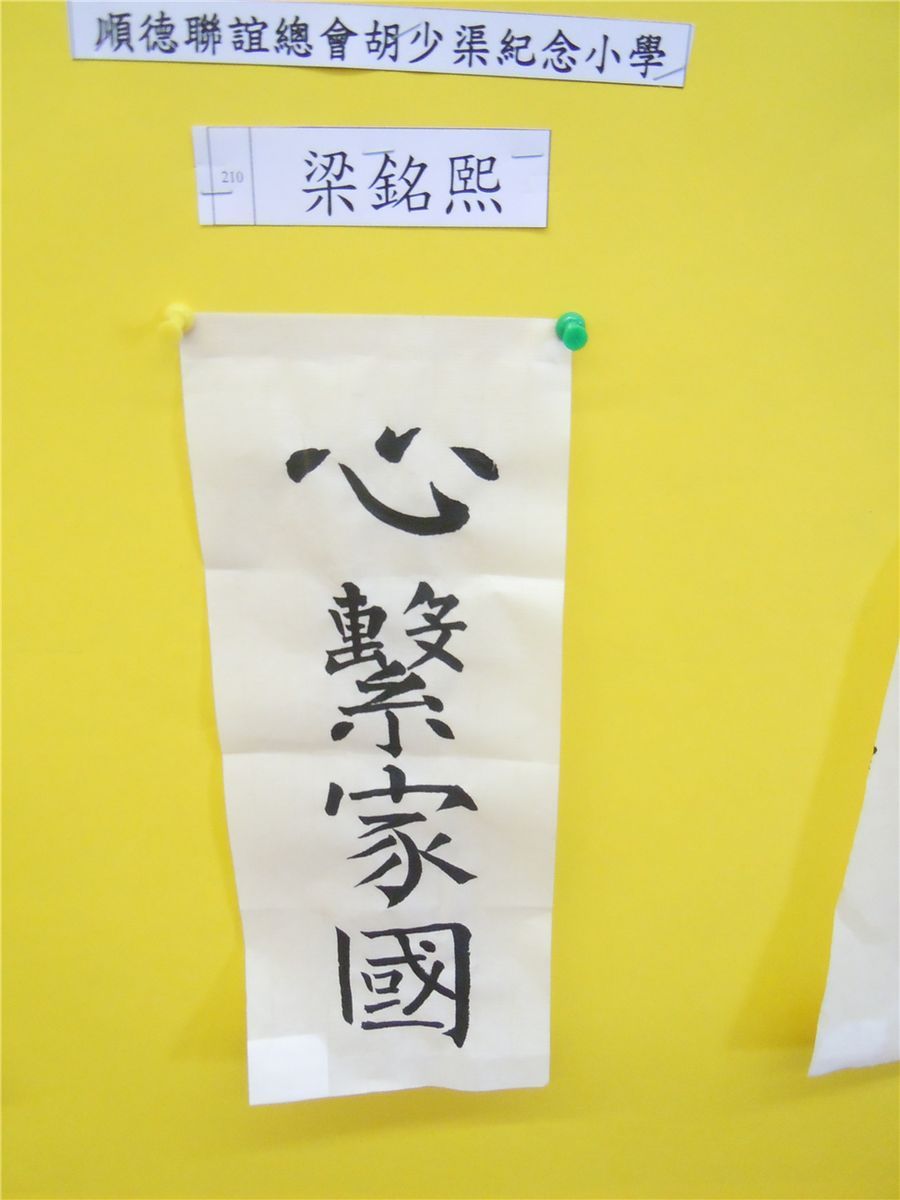 順德聯誼總會胡少渠紀念小學
210 梁銘熙
心繫家國